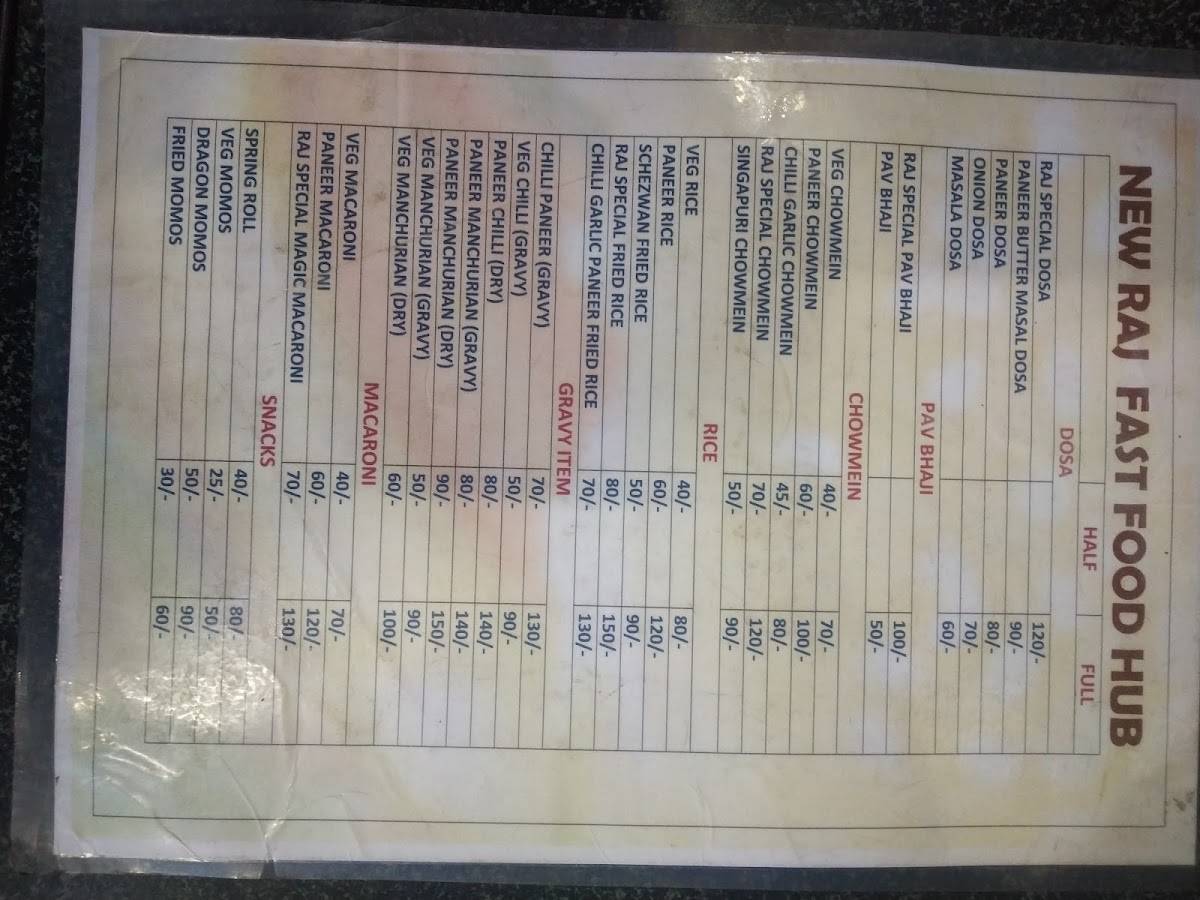 NEW RAJ FAST FOOD HUB
HALF FULL
DOSA
RAJ SPECIAL DOSA 120/-
PANEER BUTTER MASAL DOSA 90/-
PANEER DOSA 80/-
ONION DOSA 70/-
MASALA DOSA 60/-
PAV BHAJI
RAJ SPECIAL PAV BHAJI 100/-
PAV BHAJI 50/-
CHOWMEIN
VEG CHOWMEIN 40/- 70/-
PANEER CHOWMEIN 60/- 100/-
CHILLI GARLIC CHOWMEIN 45/- 80/-
RAJ SPECIAL CHOWMEIN 70/- 120/-
SINGAPURI CHOWMEIN 50/- 90/-
RICE
VEG RICE 40/- 80/-
PANEER RICE 60/- 120/-
SCHEZWAN FRIED RICE 50/- 90/-
RAJ SPECIAL FRIED RICE 80/- 150/-
CHILLI GARLIC PANEER FRIED RICE 70/- 130/-
GRAVY ITEM
CHILLI PANEER (GRAVY) 70/- 130/-
VEG CHILLI (GRAVY) 50/- 90/-
PANEER CHILLI (DRY) 80/- 140/-
PANEER MANCHURIAN (GRAVY) 80/- 140/-
PANEER MANCHURIAN (DRY) 90/- 150/-
VEG MANCHURIAN (GRAVY) 50/- 90/-
VEG MANCHURIAN (DRY) 60/- 100/-
MACARONI
VEG MACARONI 40/- 70/-
PANEER MACARONI 60/- 120/-
RAJ SPECIAL MAGIC MACARONI 70/- 130/-
SNACKS
SPRING ROLL 40/- 80/-
VEG MOMOS 25/- 50/-
DRAGON MOMOS 50/- 90/-
FRIED MOMOS 30/- 60/-